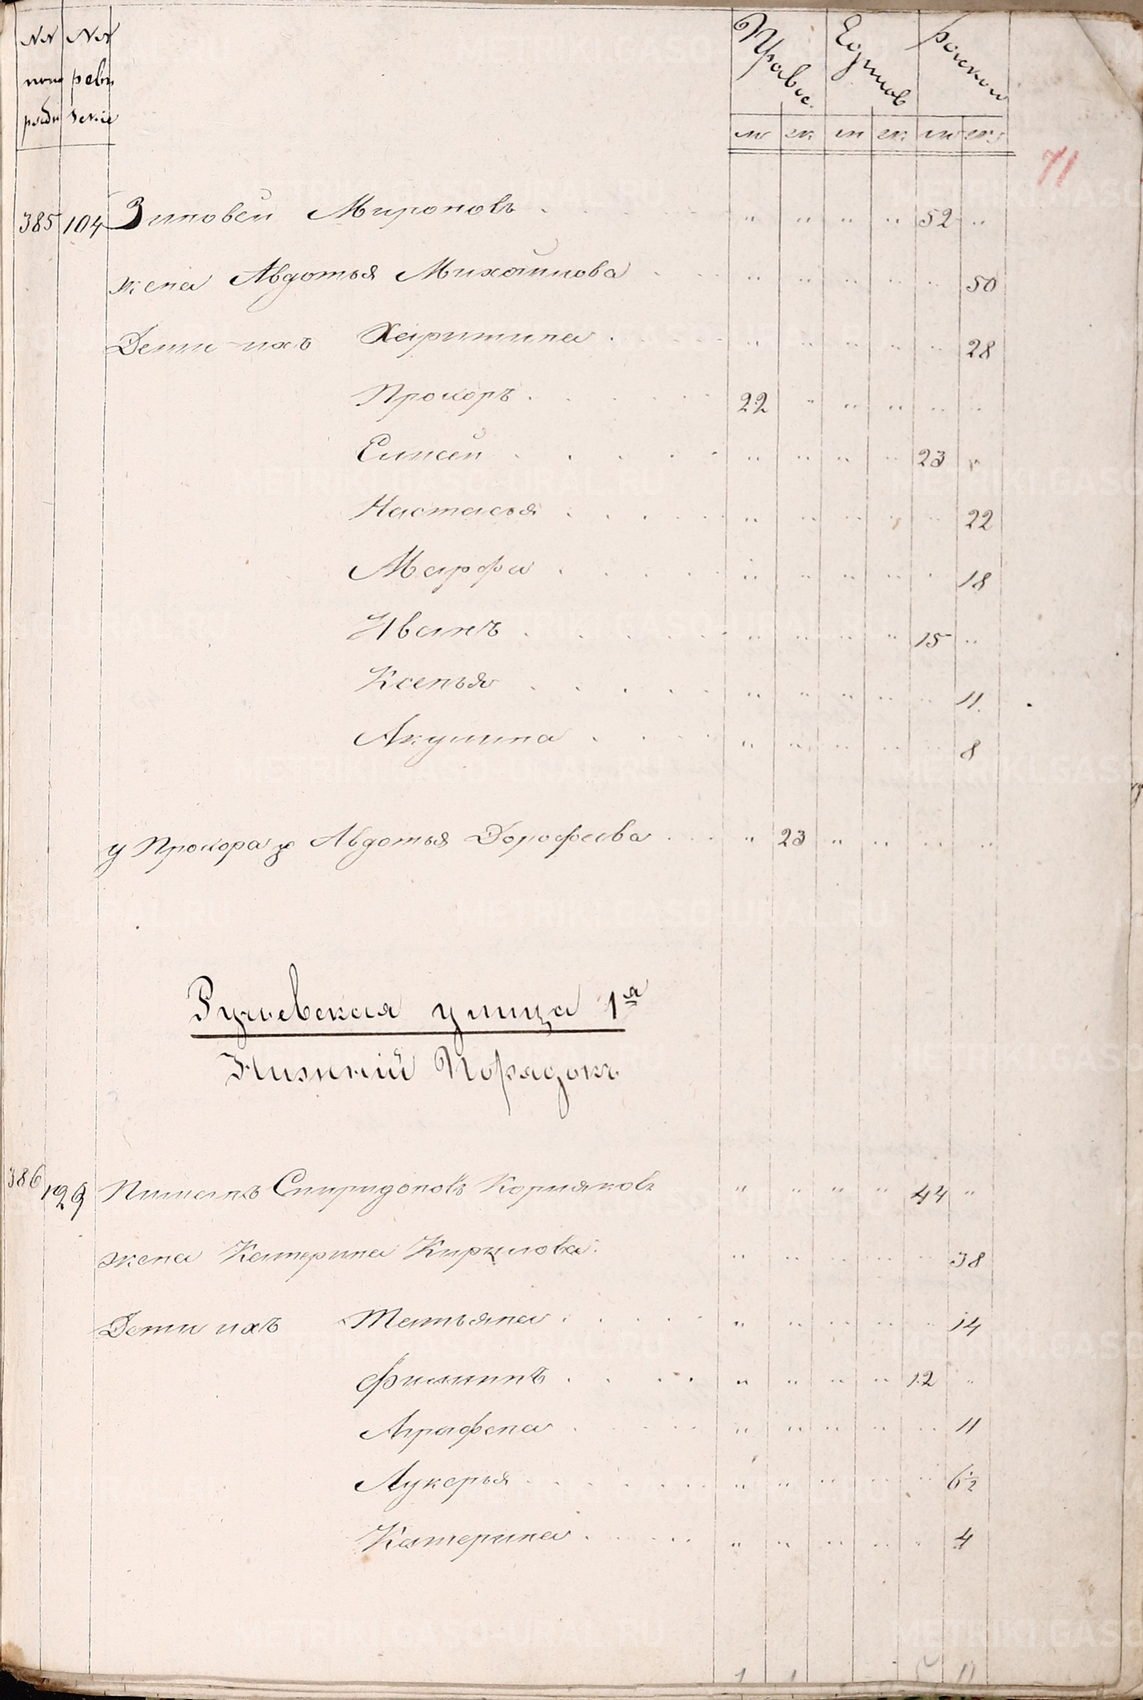 NN NN Правос. Единов раскол
поря ревиз
рядн зские м ж м ж м ж
71
385 104 Зиновей Миронов . . . „ „ „ „ 52 „
жена Авдотья Михайлова . . „ „ „ „ „ 50
Дети их Харитина . . . „ „ „ „ „ 28
Прохоръ . . . 22 „ „ „ „ „
Елисей . . . „ „ „ „ 23 „
Настасья . . . „ „ „ „ „ 22
Марфа . . . „ „ „ „ „ 18
Иванъ . . . „ „ „ „ 15 „
Ксенья . . . „ „ „ „ „ 11
Акулина . . . „ „ „ „ „ 8
у Прохора ж Авдотья Дорофеева . . . „ 23 „ „ „ „
Ручьевская улица 1я
Нижний Порядокъ
386 129 Пиманъ Спиридоновъ Корняковъ „ „ „ „ 44 „
жена Катерина Кирилова „ „ „ „ „ 38
Дети ихъ Татьяна . . . „ „ „ „ „ 14
Филиппъ . . . „ „ „ „ 12 „
Аграфена . . . „ „ „ „ „ 11
Лукерья . . . „ „ „ „ „ 6½
Катерина . . . „ „ „ „ „ 4
METRIKI.GASO-URAL.RU